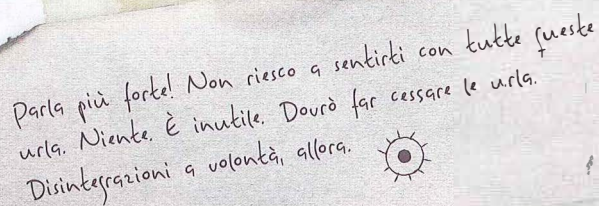 Parla più forte! Non riesco a sentirti con tutte queste
urla. Niente. È inutile. Dovrò far cessare le urla.
Disintegrazioni a volontà, allora.